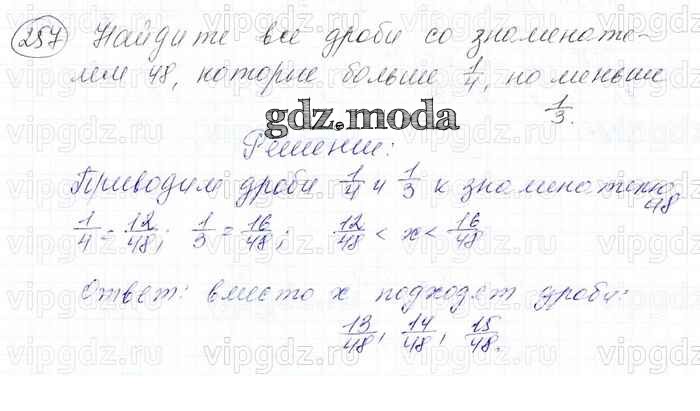 257 Найдите все дроби со знаменате-
лем 48, которые больше 1/4, но меньше
1/3.
gdz.moda
Решение:
Приводим дроби 1/4 и 1/3 к знаменателю
48
1/4 = 12/48; 1/3 = 16/48; 12/48 < x < 16/48
Ответ: вместо x подходят дроби:
13/48, 14/48, 15/48.
vipgdz.ru vipgdz.ru vipgdz.ru vipgdz.ru